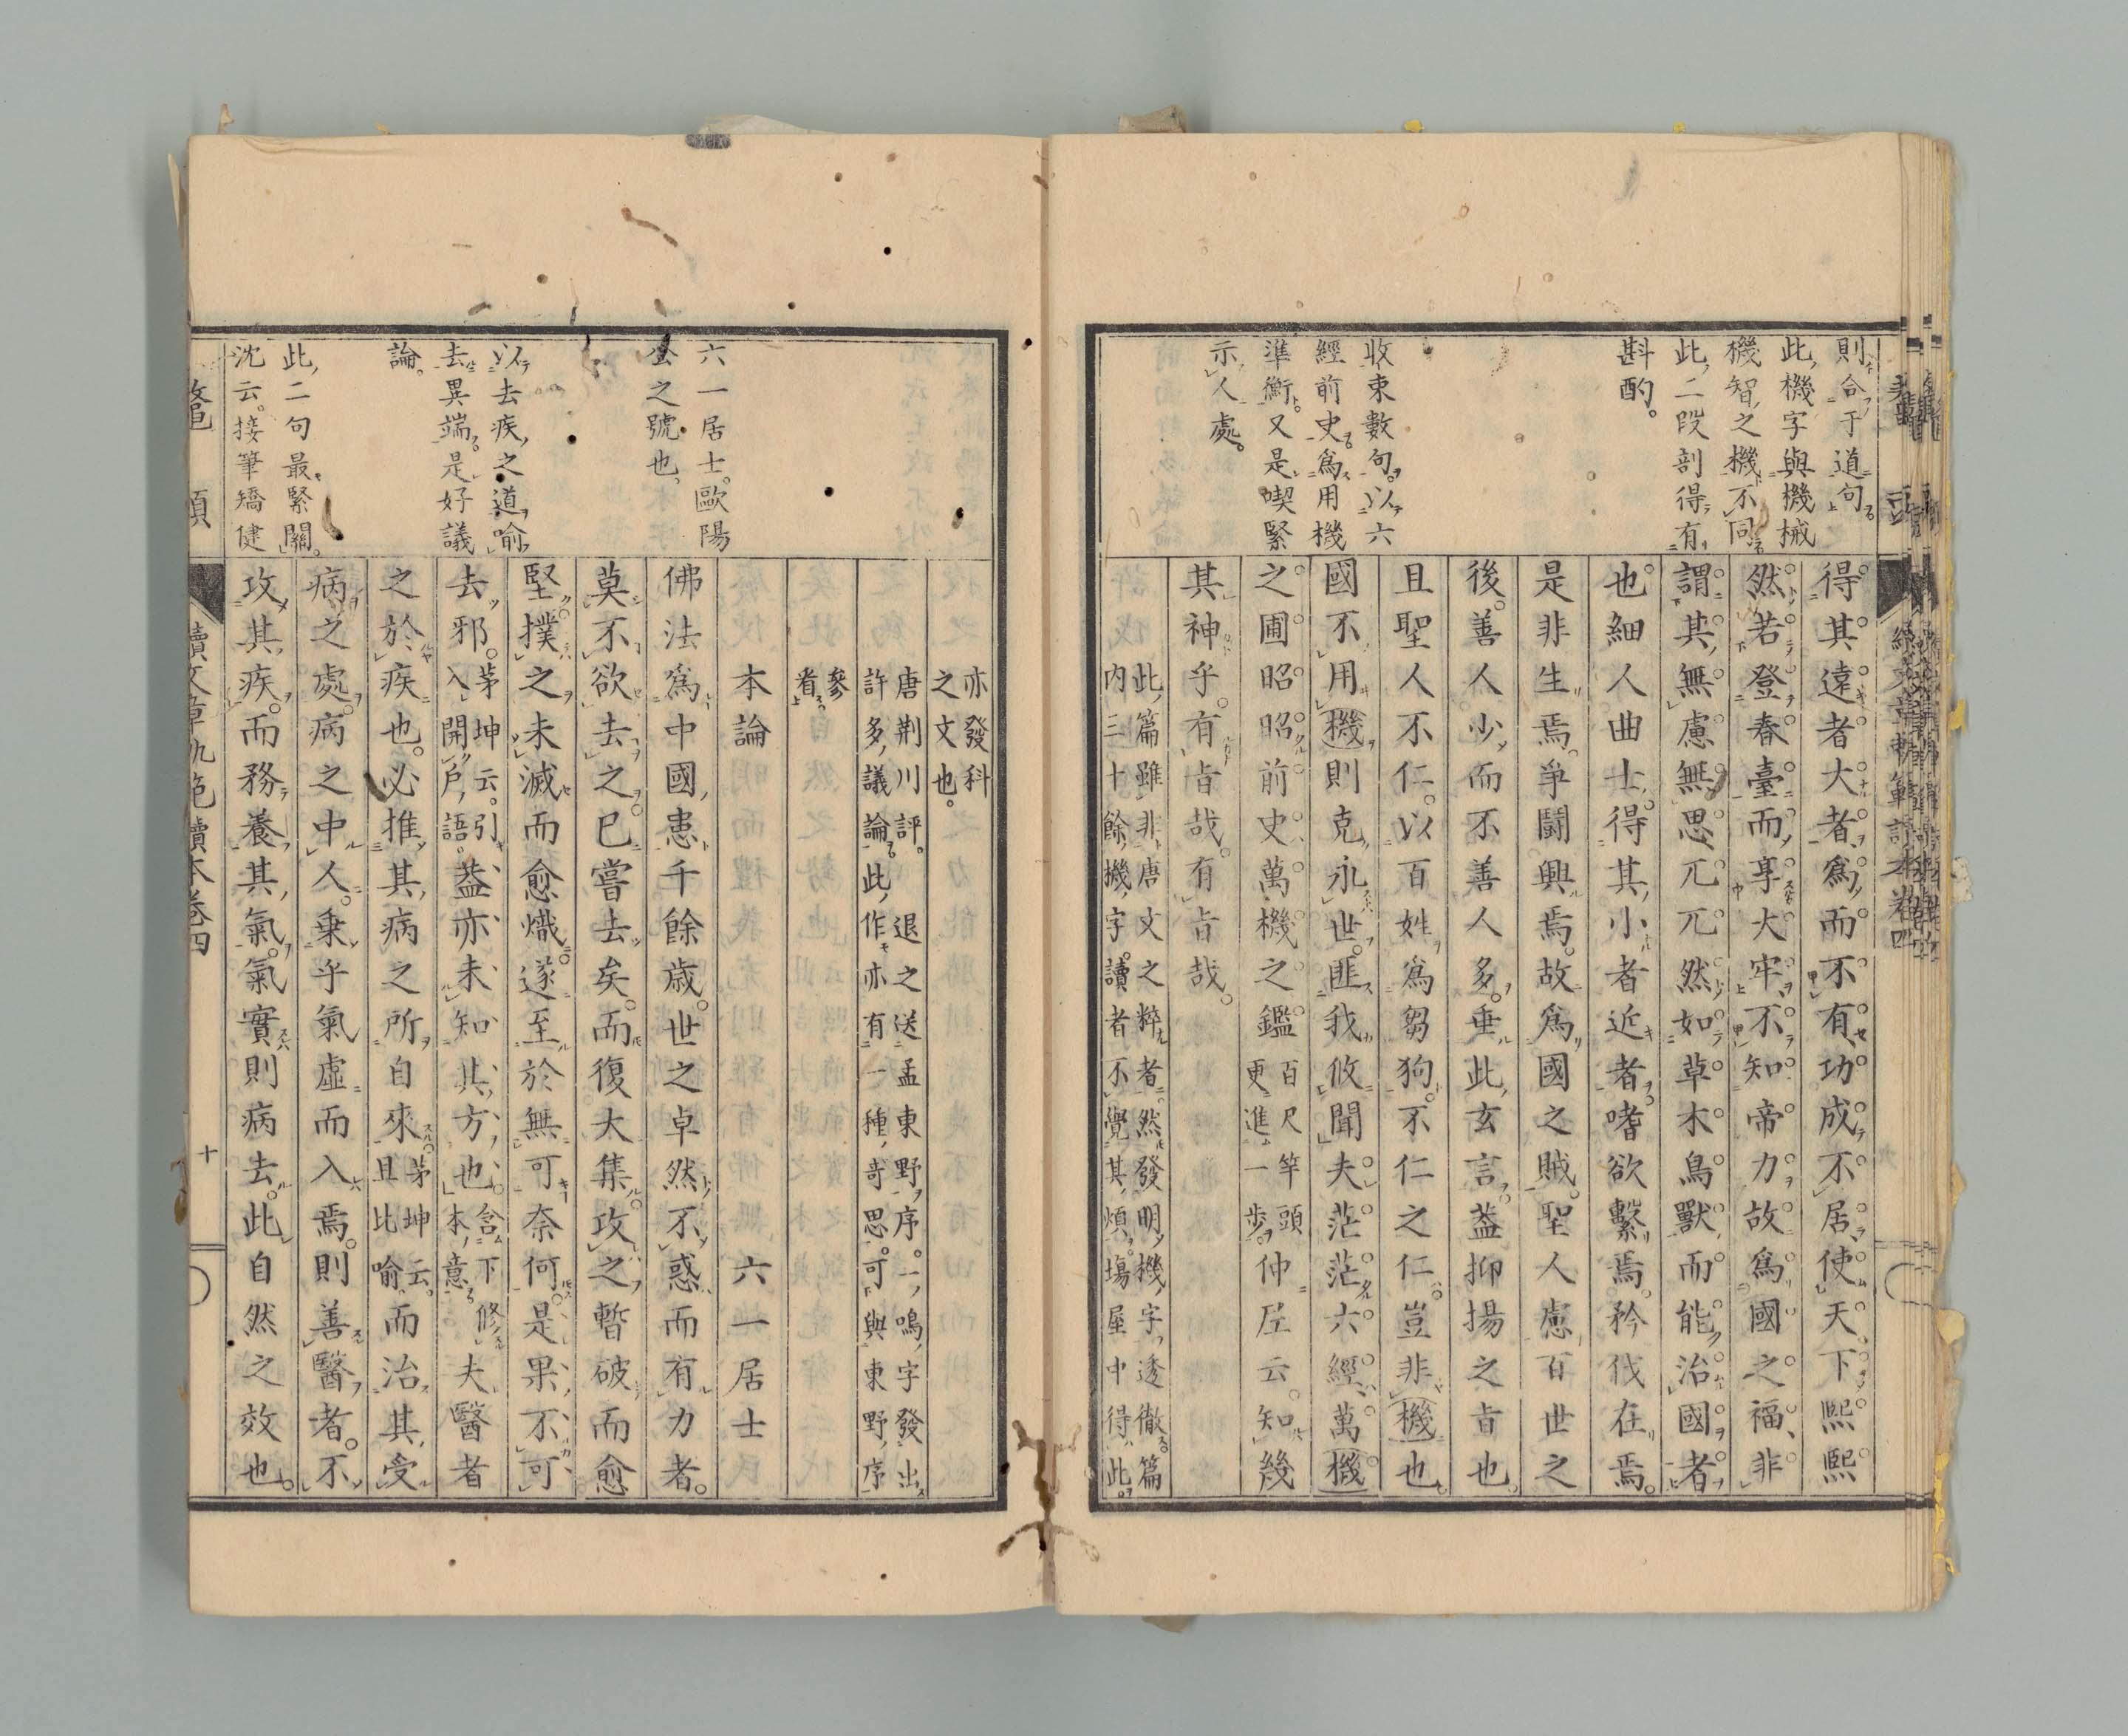 則合于道句
此機字與機械
機智之機不同
此二段剖得有
斟酌。
收束數句。以六
經前史爲用機
準衡。又是喫緊
示人處。
得其遠者大者爲而不有功成不居使天下熙熙
然若登春臺而享大牢不知帝力故爲國之福非
謂其無慮無思兀兀然如草木鳥獸而能治國者
也細人曲士得其小者近者嗜欲繫焉矜伐在焉。
是非生焉。爭鬪興焉。故爲國之賊。聖人慮百世之
後。善人少而不善人多。垂此玄言。葢抑揚之旨也。
且聖人不仁。以百姓爲芻狗。不仁之仁。豈非機也。
國不用機則克永世。匪我攸聞夫茫茫六經萬機
之圃昭昭前史萬機之鑑百尺竿頭
更進一步。仲𡉄云。知幾
其神乎。有旨哉。有旨哉。
此篇雖非唐文之粹者。然發明機字透徹。篇
内三十餘機字。讀者不覺其煩。塲屋中得此。
亦發科
之文也。
唐荆川評。退之送孟東野序。一鳴字發出
許多議論。此作亦有一種奇思。可與東野序
參
看。
本論 六一居士
佛法爲中國患千餘歳。世之卓然不惑而有力者。
莫不欲去之。已嘗去矣。而復大集。攻之暫破而愈
堅。撲之未滅而愈熾。遂至於無可奈何。是果不可
去邪。茅坤云。引
入開戸語。葢亦未知其方也。含下修
本意夫醫者
之於疾也。必推其病之所自來茅坤云。
且比喻。而治其受
病之處。病之中人。乗乎氣虛而入焉。則善醫者。不
攻其疾。而務養其氣。氣實則病去。此自然之效也。
六一居士。歐陽
公之號也。
以去疾之道喻
去異端。是好議
論。
此二句最緊關。
沈云。接筆矯健
鼇頭
續文章軌範讀本卷四
十